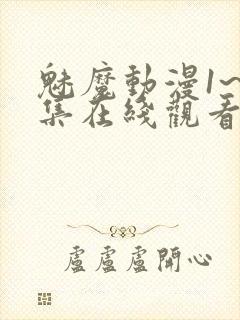 魅魔動漫1~
集在綫觀看
盧盧盧開心